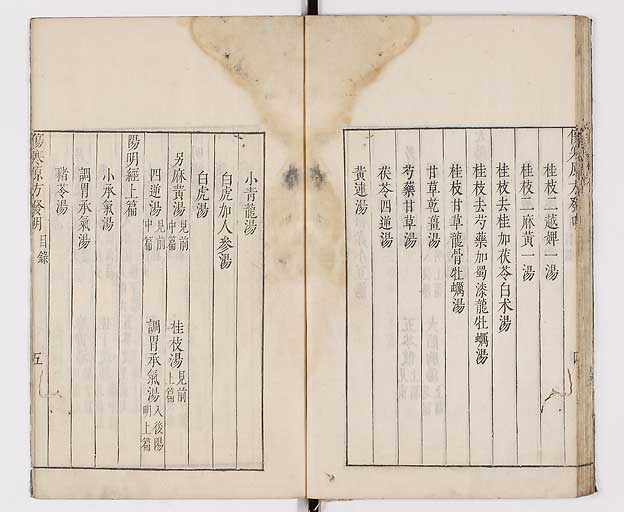 桂枝二越婢一湯
桂枝二麻黃一湯
桂枝去桂加茯苓白术湯
桂枝去芍藥加蜀漆龍牡蠣湯
桂枝甘草龍骨牡蠣湯
甘草乾薑湯
芍藥甘草湯
茯苓四逆湯
黃連湯
小青龍湯
白虎加人參湯
白虎湯
另麻黃湯見前中篇 桂枝湯見前上篇
四逆湯見前中篇 調胃承氣湯入後陽明上篇
陽明經上篇
小承氣湯
調胃承氣湯
豬苓湯
傷寒原方發明 目錄 五